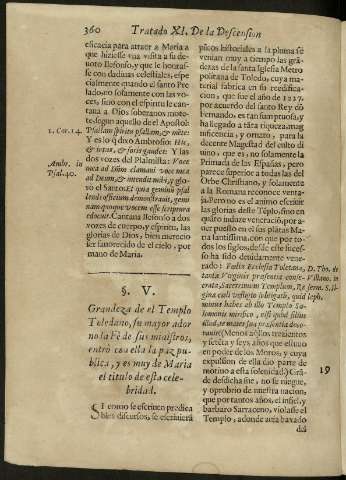 360 Tratado XI. De la Descension
eficacia para atraer a Maria a
que hiziesse una visita a su de-
uoto Ilefonso, y que le honras-
se con dadiuas celestiales, espe-
cialmente quando el santo Pre
lado, no solamente con las vo-
ces, sino con el espiritu le canta-
ua a Dios soberanos mote-
tes, segun aquello del Apostol:
1. Cor. 14. Psallam spiritu psallam, & mẽte:
Y es lo q̃ dixo Ambrosio: Hic,
& iuxta, & Y las
Ambr. in dos vozes del Psalmista: Voce
Psal. 40. mea ad Dñum clamaui voce
mea ad Deum, & intendit mihi, y glo-
sò el Santo: Et qua gemini psal
officium demonstrait, gemi
nam quoque vocem esse scriptura
edocuit. Cantaua Ilefonso a dos
vozes de cuerpo, y espiritu, las
glorias de Dios, bien merecio
ser fauorecido de el cielo, por
mano de Maria.
§. V.
Grandeza de el Templo
Toledano, su mayor ador
no la Fè de sus ministros,
entrò con ella la paz pu-
blica, y es muy de Maria
el titulo de esta cele-
bridad.
SI como se escriuen predica
bles discursos, se escriuiera
historiales a la pluma se
venian muy a ocasion las grã-
dezas de la santa Iglesia Metro
politana de Toledo, cuya ma-
terial fabrica en su reedifica-
cion, que fue el año de 1227.
por acuerdo del santo Rey dõ
Fernando, es tan sumptuosa, y
ha llegado a tãta riqueza, mag
nificencia, y ornato, para la
decente Magestad del culto di
uino, que es, no solamente la
Primada de las Españas, pero
parece superior a todas las del
Orbe Christiano, y solamente
a la Romana reconoce venta-
ja. Pero no es el animo escriuir
las glorias deste Tẽplo, sino en
quãto induze veneraciõ, por a-
quel puesto en el sus plãtas Ma
ria santissima, con que por to-
dos los siglos, desde este suces-
so ha sido deuidamente vene-
rado: Vadis Ecclesia Toletana, D. Tho. de
tanta Virginis praesentia conse- Villano. in
crata, Sacrarium Templum, Re ferm. S. Il
gina caeli vestigio insignitis, quid leph.
minus habes ab illo Templo Sa-
lomonis mirifico, nisi quòd filius
illud, & mater sua praesentia deco-
rauit? Menos años trezientos
y setẽta y seys años, que estuuo
en poder de los Moros, y cuya
expulsion de ella dio parte de
motiuo a esta solenidad? Grã-
de desdicha fue, no se niegue, 19
y oprobrio de nuestra nacion,
que por tantos años, el infiel, y
barbaro Sarraceno, violasse el
Templo, adonde auia baxado